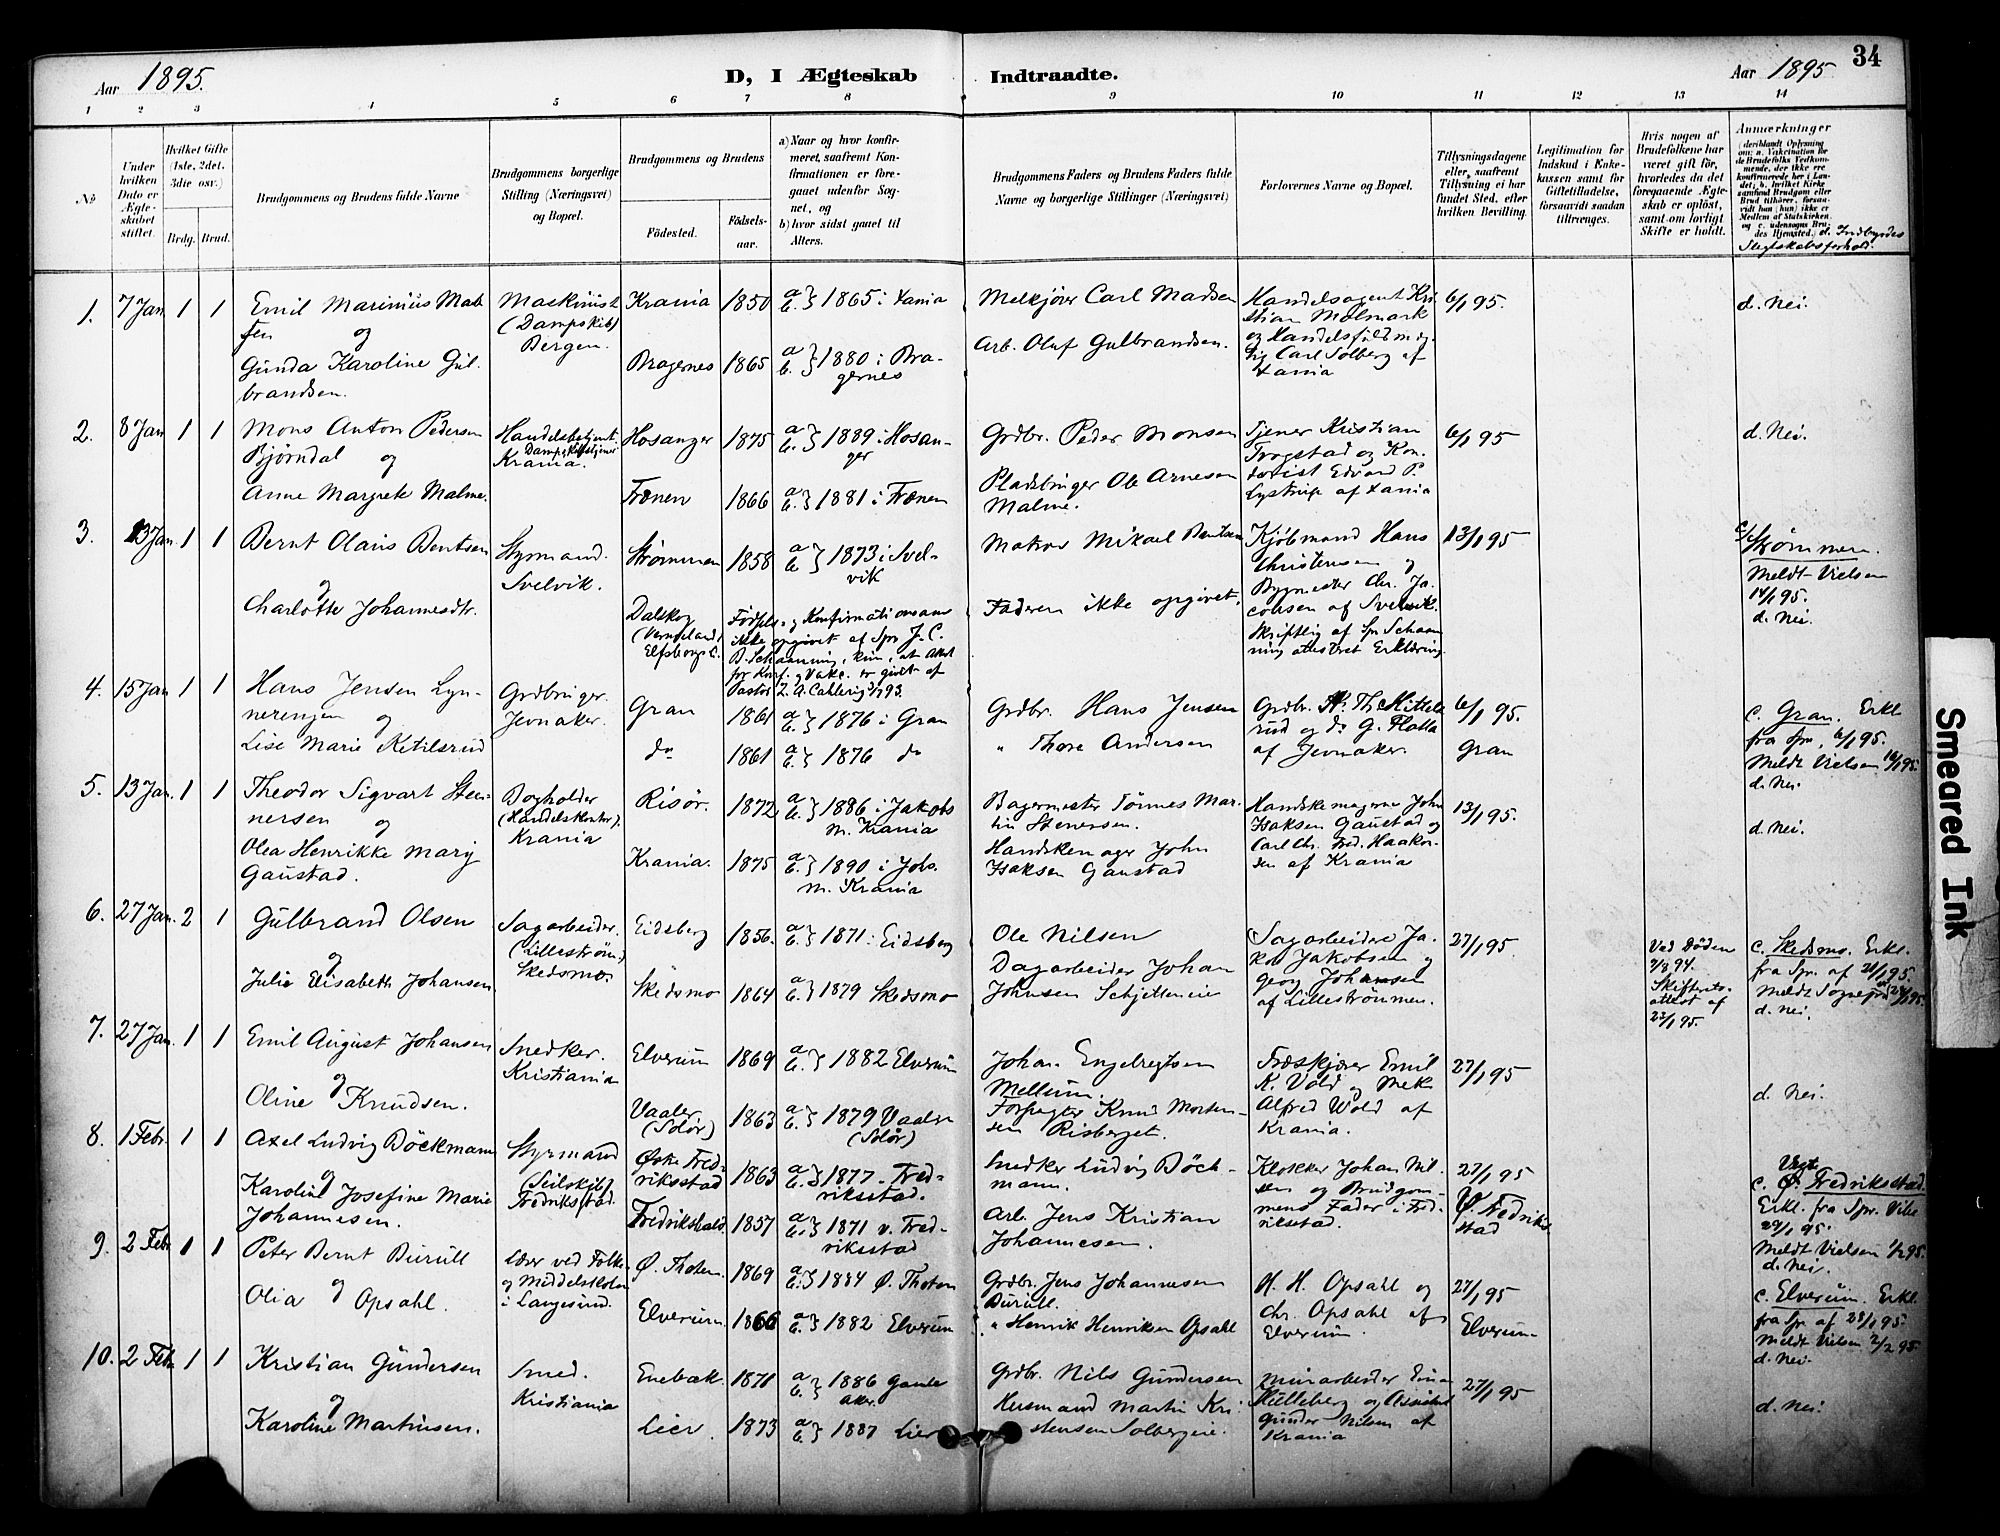 Aar 1895.
D, I Ægteskab Indtraadte.
Aar 1895
34
1 2 3 4 5 6 7 8 9 10 11 12 13 14
No
Under hvilken Dato er Ægteskabet stiftet.
Hvilket Gifte (1ste, 2det, 3die osv.)
Brdg. Brud.
Brudgommens og Brudens fulde Navne
Brudgommens borgerlige Stilling (Næringsvei) og Bopæl.
Brudgommens og Brudens
Fødested. Fødselsaar.
a) Naar og hvor konfirmeret, saafremt Konfirmationen er foregaaet udenfor Sognet, og
b) hvor sidst gaaet til Alters.
Brudgommens Faders og Brudens Faders fulde Navne og borgerlige Stillinger (Næringsvei)
Forlovernes Navne og Bopæl.
Tillysningsdagene eller, saafremt Tillysning ei har fundet Sted, efter hvilken Bevilling.
Legitimation for Indskud i Enkekassen samt for Giftetilladelse, forsaavidt saadan tiltrænges.
Hvis nogen af Brudefolkene har været gift før, hvorledes da det foregaaende Ægteskab er opløst, samt om lovligt Skifte er holdt.
Anmærkninger (deriblandt Oplysning om: a. Vakcination for de Brudefolks Vedkommende, der ikke ere konfirmerede her i Landet; b. hvilket Kirkesamfund Brudgom eller Brud tilhører, forsaavidt han (hun) ikke er Medlem af Statskirken, og c. udensogns Brudes Hjemsted.) d. Indbyrdes Slegtskabsforhold.
1. 7 Jan 1 1
Emil Marinius Madsen og
Gunda Karoline Gulbrandsen.
Maskinist (Dampskib) Bergen.
Krania 1850 a b. } 1865 i Xania
Bragernes 1865 a b. } 1880 i Bragernes
Melkjører Carl Madsen
Arb. Oluf Gulbrandsen.
Handelsagent Kristian Malmark og Handelsfuldmægtig Carl Solberg af Xania
6/1 95.
d. Nei.
2. 8 Jan 1 1
Mons Anton Pedersen Bjørndal og
Anne Margrete Malme.
Handelsbetjent. Dampskibstjener Krania.
Hosanger 1875 a b. } 1889 i Hosanger
Frænen 1866 a b. } 1881 i Frænen
Grdbr. Peder Monsen
Pladsbruger Ole Arnesen Malme.
Tjener Kristian Trogstad og Konditorist Edvard P. Lystrup af Xania
6/1 95
d. Nei.
3. 13 Jan 1 1
Bernt Olaus Bentsen og
Charlotte Johannesdtr.
Styrmand. Svelvik.
Strømmen 1858 a b } 1873 i Svelvik
Dalskog (Vermeland) Elfsborgs L.
Fødsels- og Konfirmationsaar ikke opgivet af Spr J. C. B. Schaanning, kun, at Attest for Konf. og Vakc. er givet af Pastor Z. A. Cahlerig 3/1 93.
Matros Mikael Bentsen
Faderen ikke opgivet.
Kjøbmand Hans Christensen og Bygmester Chr. Jacobsen af Svelvik. Skriftlig af Spr Schaanning attesteret Erklæring
13/1 95
c/ Strømmen. Meldt Vielsen 14/1 95. d. Nei.
4. 15 Jan 1 1
Hans Jensen Lynnerengen og
Lise Marie Ketilsrud
Grdbruger. Jevnaker.
Gran 1861 a b. } 1876 i Gran
do 1861 a b. } 1876 do
Grdbr. Hans Jensen
" Thore Andersen
Grdbr. Th. Mittelsrud og do G. Flatla af Jevnaker.
6/1 95. Gran
c. Gran. Erkl. fra Spr, 6/1 95. Meldt Vielsen 16/1 95. d. Nei.
5. 13 Jan. 1 1
Theodor Sigvart Stennersen og
Olea Henrikke Mary Gaustad.
Bogholder (Handelskontor). Krania
Risør. 1872 a b. } 1886 i Jakobs M. Krania
Krania. 1875 a b. } 1890 i Johs. M. Krania
Bagermester Tønnes Martin Stenersen.
Handskemager John Isaksen Gaustad
Handskemagerne John Isaksen Gaustad og Carl Chr. Fred. Haakonsen af Krania
13/1 95.
d. Nei.
6. 27 Jan. 2 1
Gulbrand Olsen og
Julie Elisabeth Johansen
Sagarbeider. (Lillestrøm) Skedsmo.
Eidsberg 1856. a b. } 1871 i Eidsberg
Skedsmo 1864 a b. } 1879 Skedsmo
Ole Nilsen
Dagarbeider Johan Johnsen Schjetteneie
Sagarbeidere Jakob Jakobsen og Georg Johansen af Lillestrømmen.
27/1 95.
Ved Døden 7/8 94. Skifterets attest af 23/1 95.
c. Skedsmo. Erkl. fra Spr. af 21/1 95 Meldt Sognepr. 28/1 95. d. Nei.
7. 27 Jan. 1 1
Emil August Johansen og
Oline Knudsen.
Snedker. Kristiania
Elverum 1869 a b. } 1882 Elverum
Vaaler (Solør) 1863 a b. } 1879 Vaaler (Solør)
Johan Engelregtsen Mellum.
Forpagter Knud Mortensen Risberget.
Træskjærer Emil K. Vold og Mek Alfred Wold af Krania.
27/1 95
d. Nei.
8. 1 Febr. 1 1
Axel Ludvig Böckmann og
Karoline Josefine Marie Johannesen.
Styrmand (Seilskib) Fredriksstad.
Østre Fredriksstad 1863 a b. } 1877 - Fredriksstad.
Fredrikshald 1857 a b. } 1871 v. Fredriksstad
Snedker Ludvig Böckmann.
Arb. Jens Kristian Johannesen.
Klokker Johan Nilsen og Brudgommens Fader i Fredriksstad.
27/1 95 Ø. Fredriksstad
c. Fredriksstad. Erkl. fra Spr. Vibe 29/1 95. Meldt Vielsen 1/2 95. d. Nei.
9. 2 Febr 1 1
Peter Bernt Burull og
Olia Opsahl.
Lærer ved Folke- og Middelskolen i Langesund.
Ø. Thoten. 1869 a b. } 1884 Ø. Thoten
Elverum. 1866 a b. } 1882 Elverum
Grdbr. Jens Johannesen Burull.
" Henrik Henriksen Opsahl
H. H. Opsahl og Chr. Opsahl af Elverum.
27/1 95 Elverum
c. Elverum. Erkl. fra Spr af 28/1 95. Meldt Vielsen 2/2 95. d. Nei.
10. 2 Febr 1 1
Kristian Gundersen og
Karoline Martinsen.
Smed. Kristiania
Enebak. 1871 a b. } 1886 Gamle Aker.
Lier. 1873 a b. } 1887 Lier
Grdbr. Nils Gundersen
Husmand Martin Kristensen Solbergeie.
Murarbeider Einar Hulleberg og Assistent Gunder Nilsen af Krania
27/1 95
d. Nei.
Smeared Ink